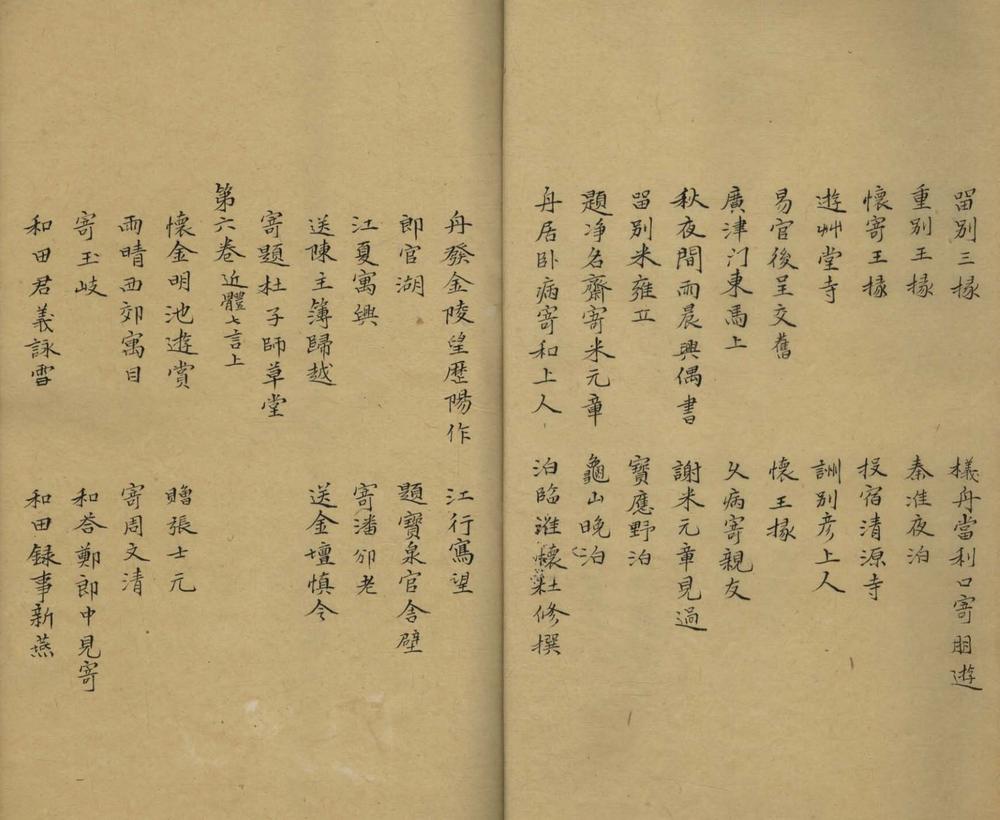 畱別三掾 檥舟當利口寄朋遊
重別王掾 秦淮夜泊
懷寄王掾 投宿清源寺
遊艸堂寺 詶別彥上人
易官後呈交舊 懷王掾
廣津门東馬上 久病寄親友
秋夜間而晨興偶書 謝米元章見過
畱別米雍丘 寶應野泊
題净名齋寄米元章 龜山晚泊
舟居卧病寄和上人 泊臨淮懷杜修撰
舟發金陵望歷陽作 江行寫望
郎官湖 題寶泉官舍壁
江夏寓興 寄潘邠老
送陳主簿歸越 送金壇慎令
寄題杜子師草堂
第六卷 近體七言上
懷金明池遊賞 贈張士元
雨晴西郊寓目 寄周文清
寄王岐 和荅鄭郎中見寄
和田君義詠雪 和田録事新燕